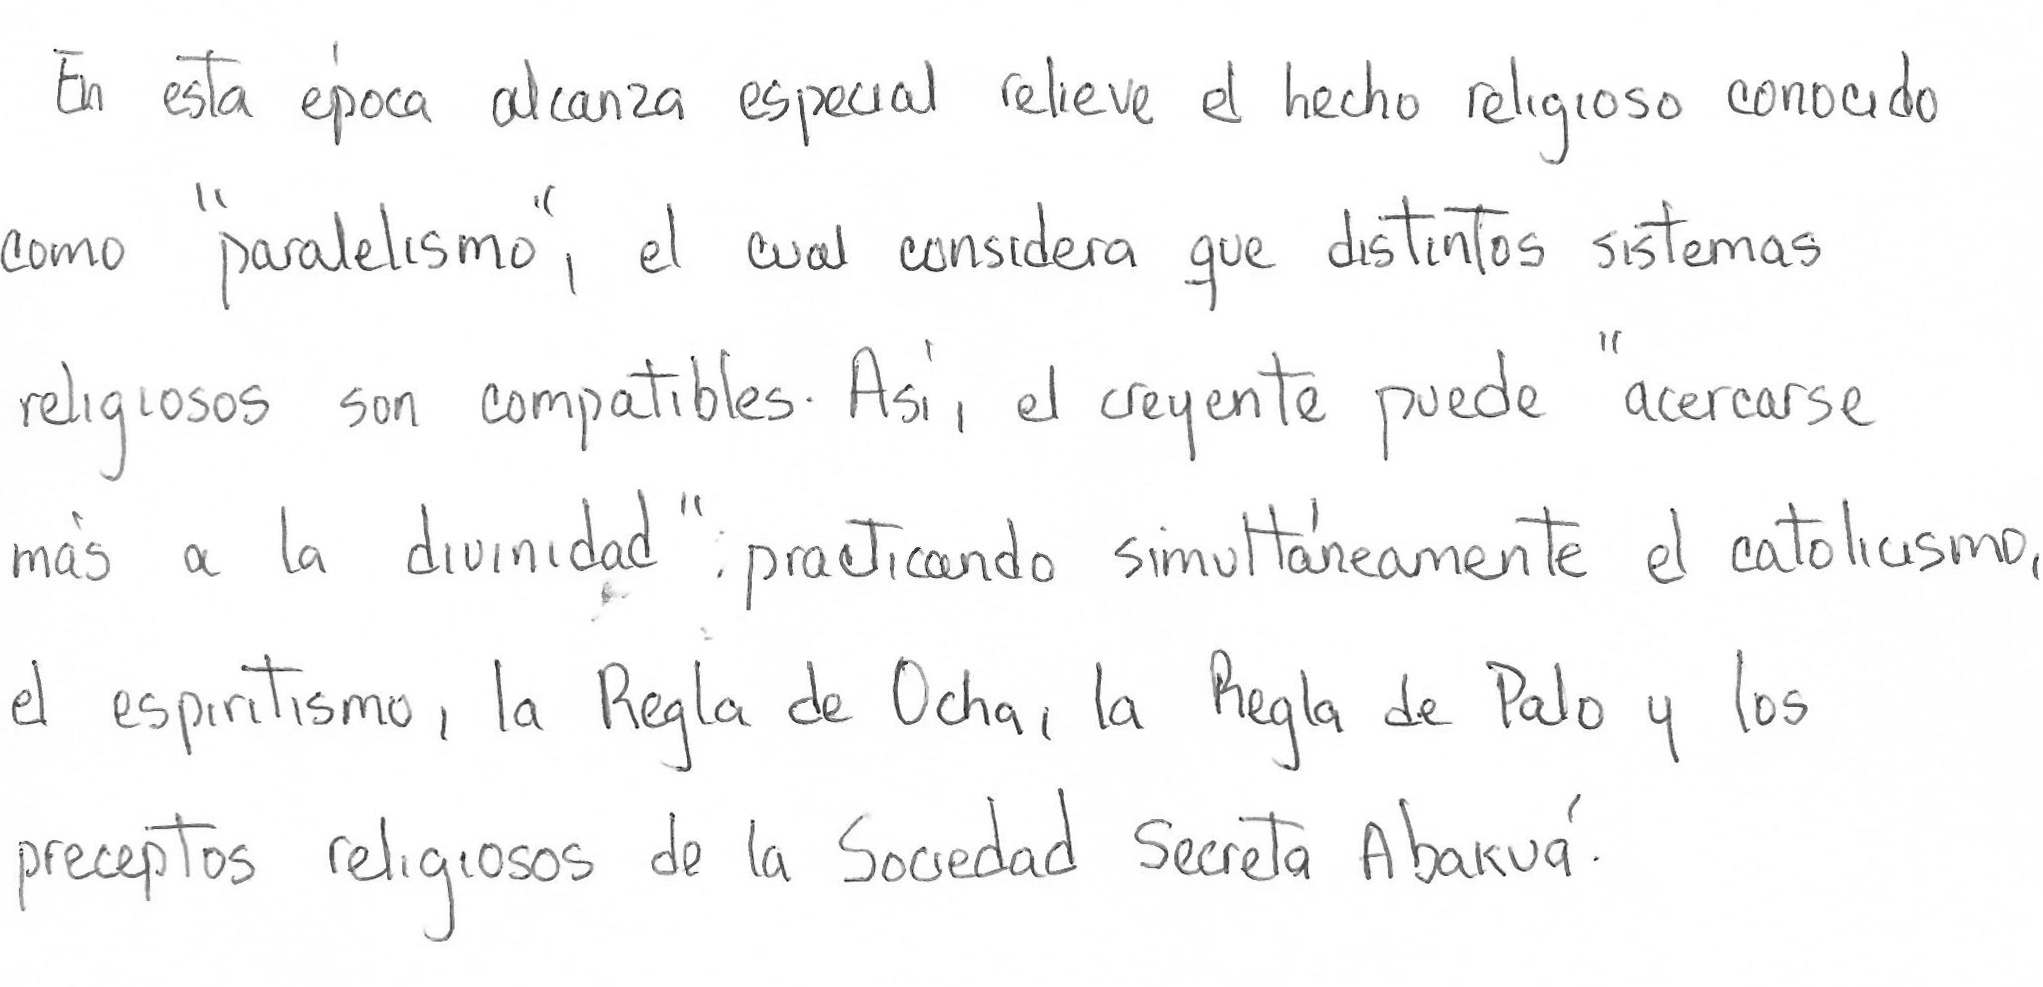 En esta época alcanza especial relieve el hecho religioso conocido
como "paralelismo", el cual considera que distintos sistemas
religiosos son compatibles. Así, el creyente puede "acercarse
más a la divinidad"; practicando simultáneamente el catolicismo,
el espiritismo, la Regla de Ocha, la Regla de Palo y los
preceptos religiosos de la Sociedad Secreta Abakuá.